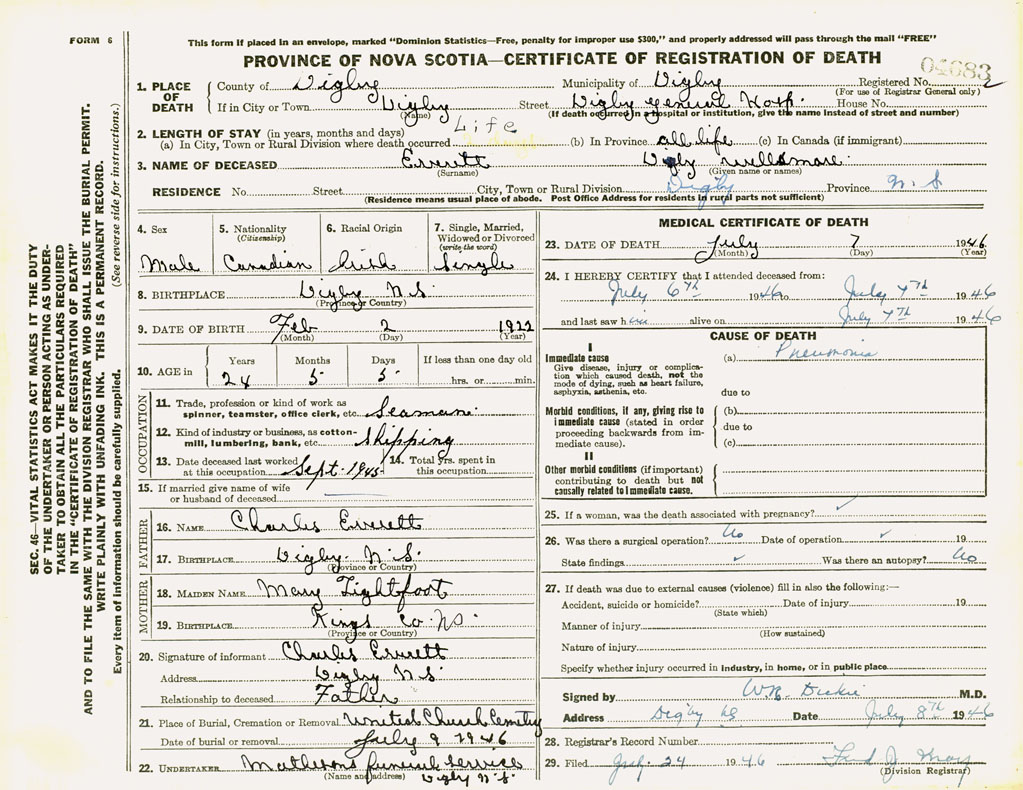 FORM 6
This form if placed in an envelope, marked "Dominion Statistics—Free, penalty for improper use $300," and properly addressed will pass through the mail "FREE"
PROVINCE OF NOVA SCOTIA—CERTIFICATE OF REGISTRATION OF DEATH
04683
1. PLACE OF DEATH
County of Digby Municipality of Digby Registered No.
(For use of Registrar General only)
If in City or Town Digby Street Digby General Hosp. House No.
(Name) (If death occurred in a hospital or institution, give the name instead of street and number)
2. LENGTH OF STAY (in years, months and days)
(a) In City, Town or Rural Division where death occurred Life (b) In Province all life (c) In Canada (if immigrant)
3. NAME OF DECEASED Everett
(Surname) (Given name or names)
RESIDENCE No. Street City, Town or Rural Division Digby Province N.S
(Residence means usual place of abode. Post Office Address for residents in rural parts not sufficient)
4. Sex 5. Nationality (Citizenship) 6. Racial Origin 7. Single, Married, Widowed or Divorced (write the word)
Male Canadian Irish Single
8. BIRTHPLACE Digby N.S.
(Province or Country)
9. DATE OF BIRTH Feb 2 1922
(Month) (Day) (Year)
10. AGE in Years Months Days If less than one day old
24 5 5 hrs. or min.
OCCUPATION
11. Trade, profession or kind of work as spinner, teamster, office clerk, etc. Seaman
12. Kind of industry or business, as cotton-mill, lumbering, bank, etc. Shipping
13. Date deceased last worked at this occupation Sept. 1945 14. Total yrs. spent in this occupation
15. If married give name of wife or husband of deceased
FATHER
16. NAME Charles Everett
17. BIRTHPLACE Digby. N.S.
(Province or Country)
MOTHER
18. MAIDEN NAME Mary Lightfoot
19. BIRTHPLACE Kings Co. NS.
(Province or Country)
20. Signature of informant Charles Everett
Address Digby N.S.
Relationship to deceased Father
21. Place of Burial, Cremation or Removal United Church Cemetry
Date of burial or removal July 9 1946
22. UNDERTAKER Mathesons funeral service
(Name and address) Digby N.S.
MEDICAL CERTIFICATE OF DEATH
23. DATE OF DEATH July 7 1946
(Month) (Day) (Year)
24. I HEREBY CERTIFY that I attended deceased from:
July 6th 1946 to July 7th 1946
and last saw him alive on July 7th 1946
CAUSE OF DEATH
I
Immediate cause (a) Pneumonia
Give disease, injury or complication which caused death, not the mode of dying, such as heart failure, asphyxia, asthenia, etc.
due to
Morbid conditions, if any, giving rise to immediate cause (stated in order proceeding backwards from immediate cause).
(b)
due to
(c)
II
Other morbid conditions (if important) contributing to death but not causally related to immediate cause.
25. If a woman, was the death associated with pregnancy?
26. Was there a surgical operation? No Date of operation 19
State findings Was there an autopsy? No
27. If death was due to external causes (violence) fill in also the following:—
Accident, suicide or homicide? Date of injury 19
(State which)
Manner of injury
(How sustained)
Nature of injury
Specify whether injury occurred in industry, in home, or in public place
Signed by W.R. Dickie M.D.
Address Digby NS Date July 8th 1946
28. Registrar's Record Number
29. Filed July 24 1946
(Division Registrar)
SEC. 46—VITAL STATISTICS ACT MAKES IT THE DUTY
OF THE UNDERTAKER OR PERSON ACTING AS UNDER-
TAKER TO OBTAIN ALL THE PARTICULARS REQUIRED
IN THE "CERTIFICATE OF REGISTRATION OF DEATH"
AND TO FILE THE SAME WITH THE DIVISION REGISTRAR WHO SHALL ISSUE THE BURIAL PERMIT.
WRITE PLAINLY WITH UNFADING INK. THIS IS A PERMANENT RECORD.
Every item of information should be carefully supplied. (See reverse side for instructions.)